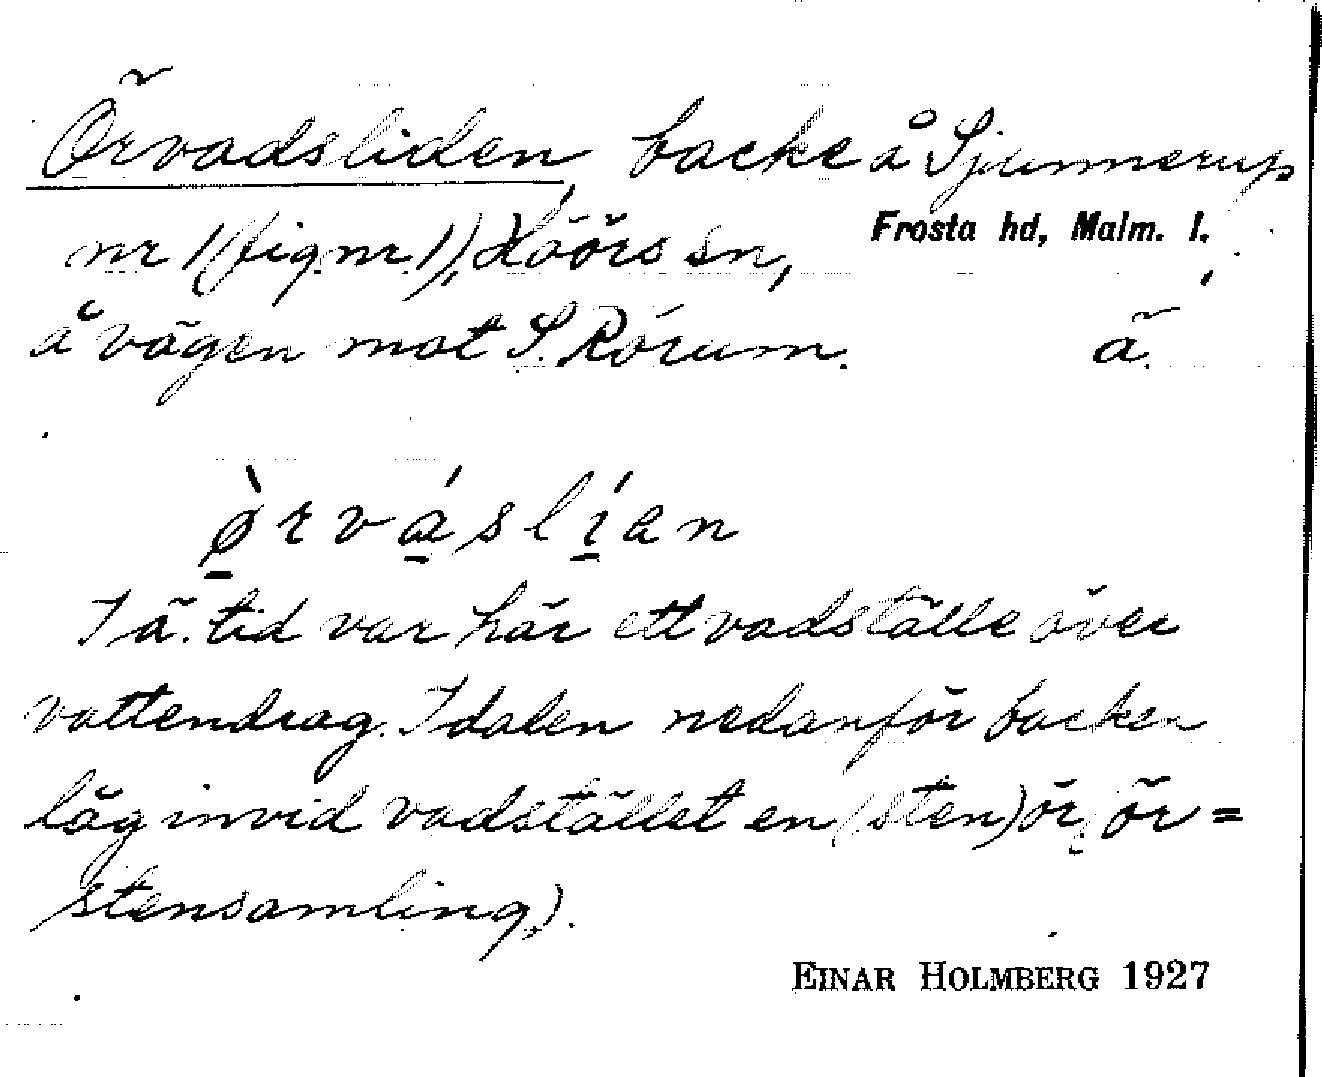 Örvadsliden, backe å Sjunnerup
nr 1 (fig. nr 1), Höörs sn, Frosta hd, Malm. l.
å vägen mot S. Rörum. ä.
ø̀rváslían
I ä. tid var här ett vadställe över
vattendrag. I dalen nedanför backen
låg invid vadstället en (sten)ör, ör =
stensamling).
EINAR HOLMBERG 1927